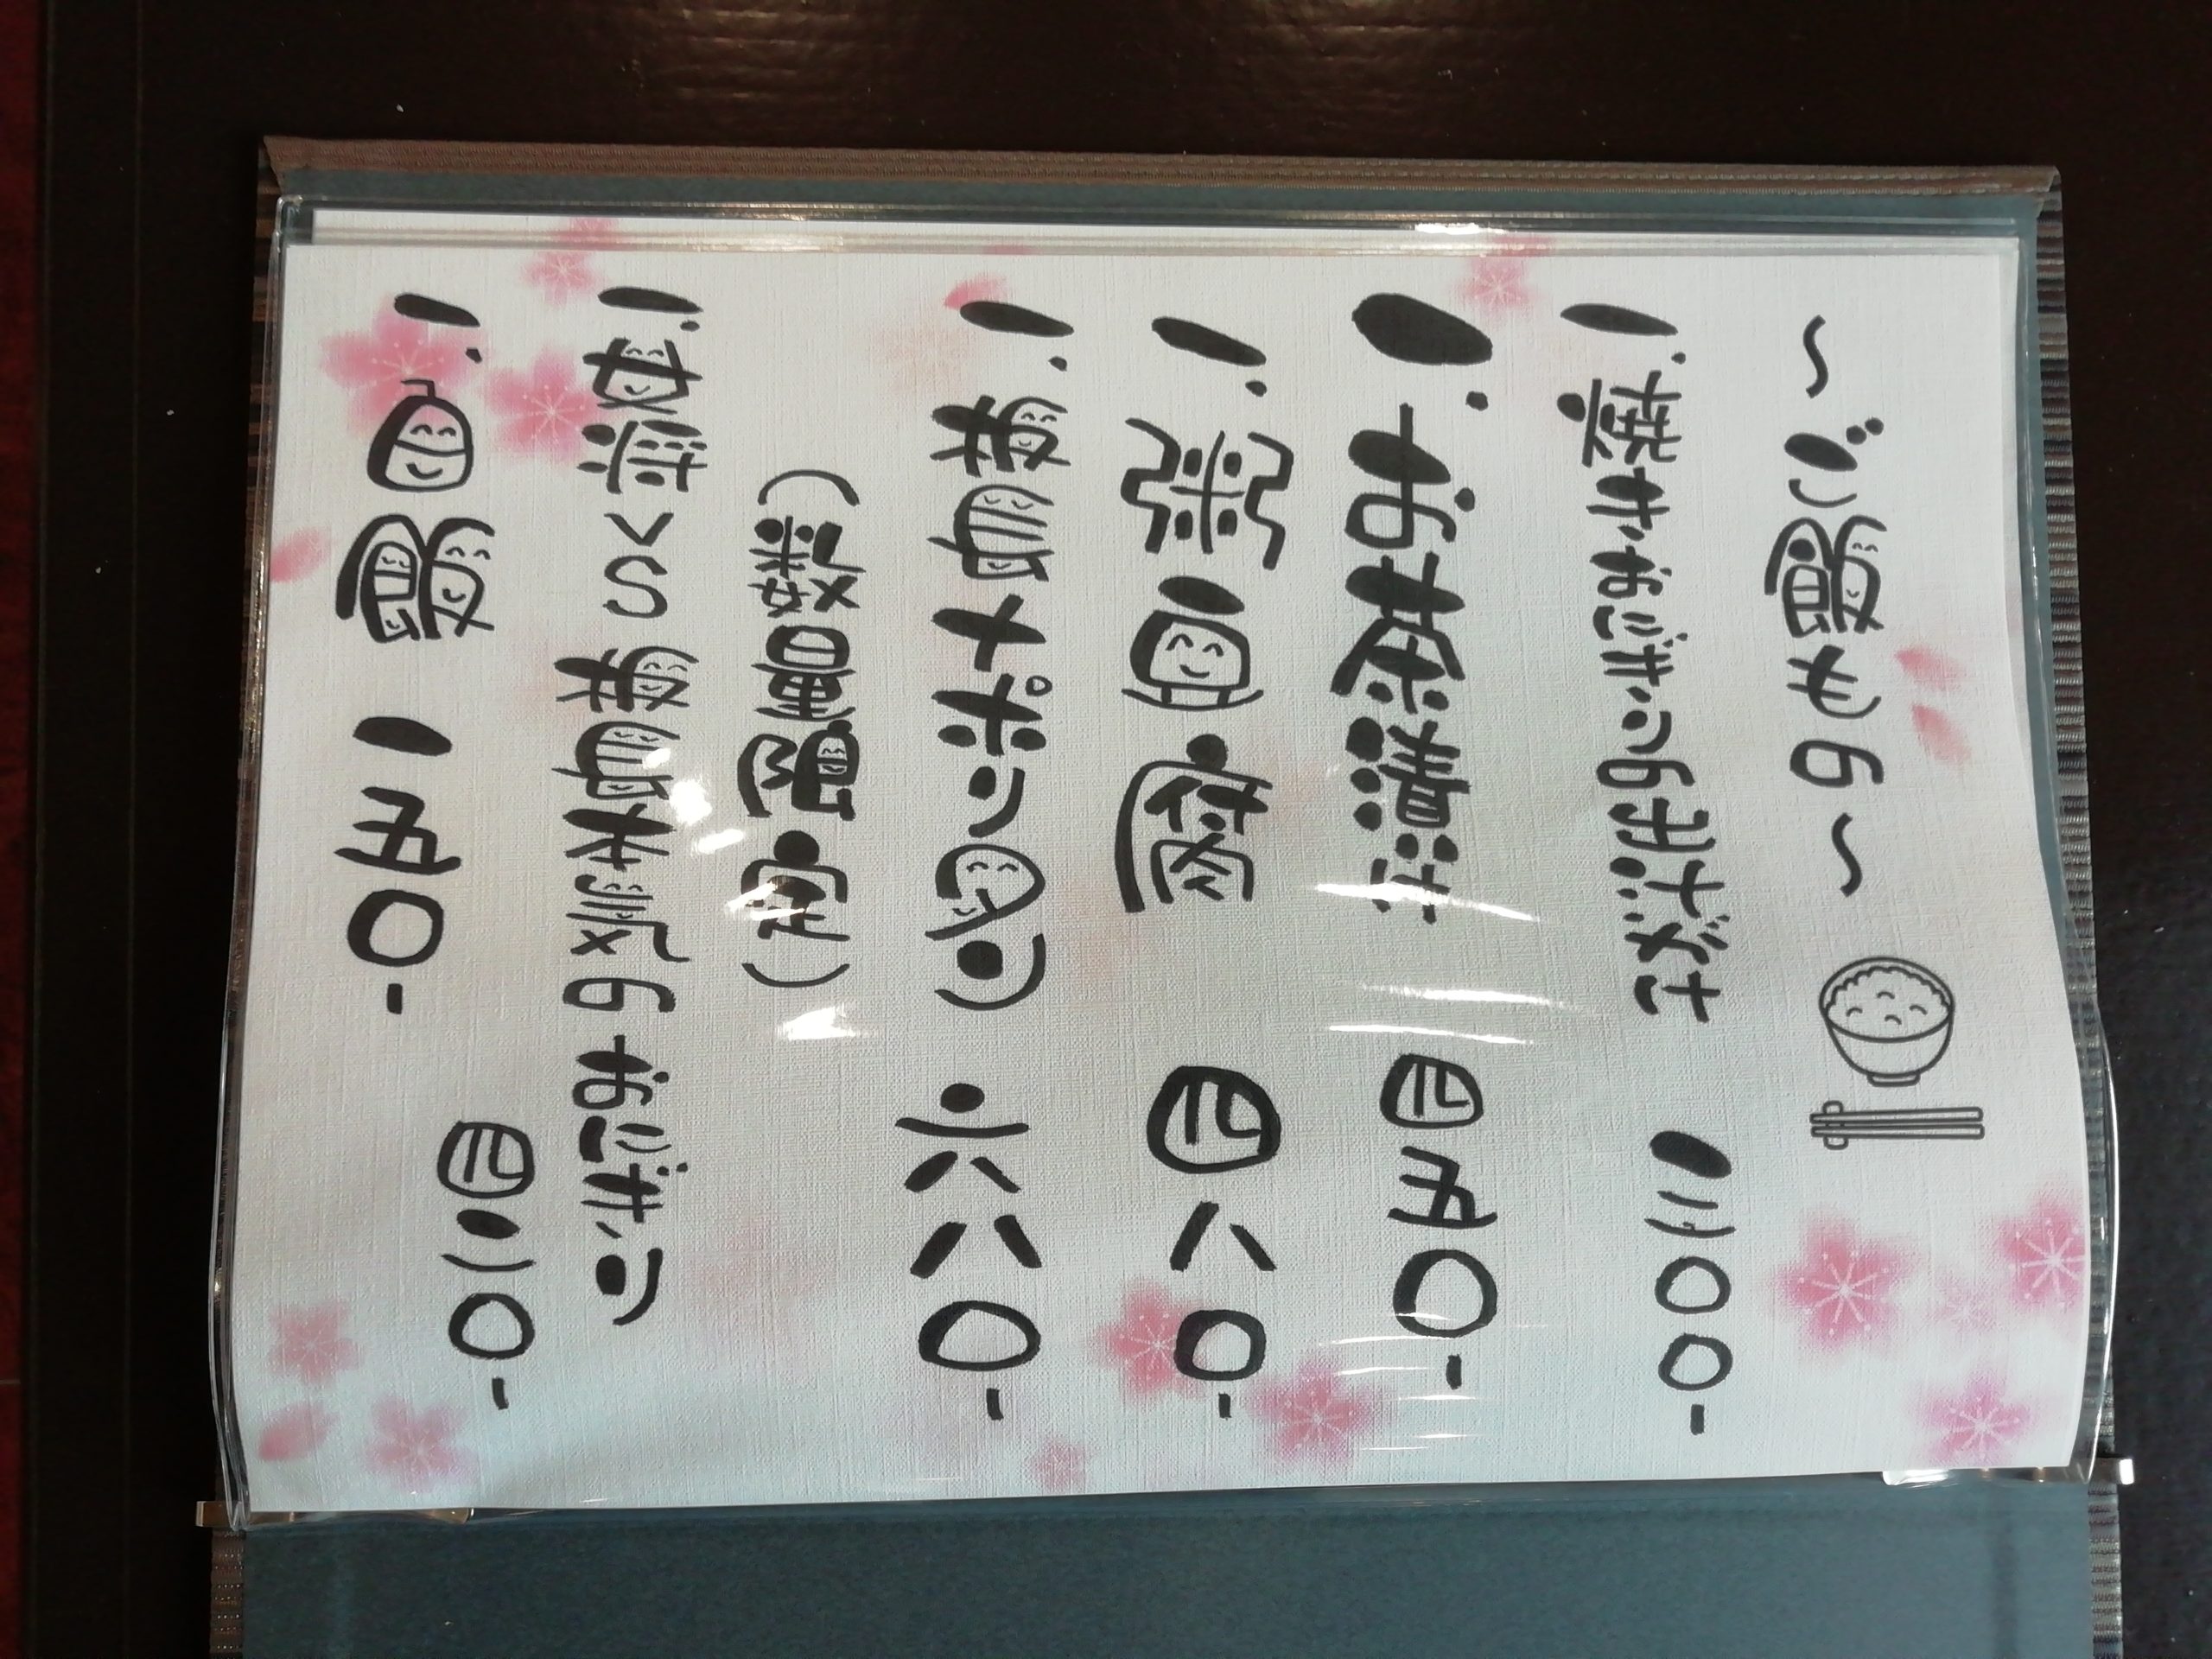 ～ご飯もの～
一、焼きおにぎりの出汁がけ 三〇〇-
一、お茶漬け 四五〇-
一、粥豆腐 四八〇-
一、板長ナポリタン 六八〇-
(数量限定)
一、女将VS板長本気のおにぎり 四三〇-
一、白飯 一五〇-